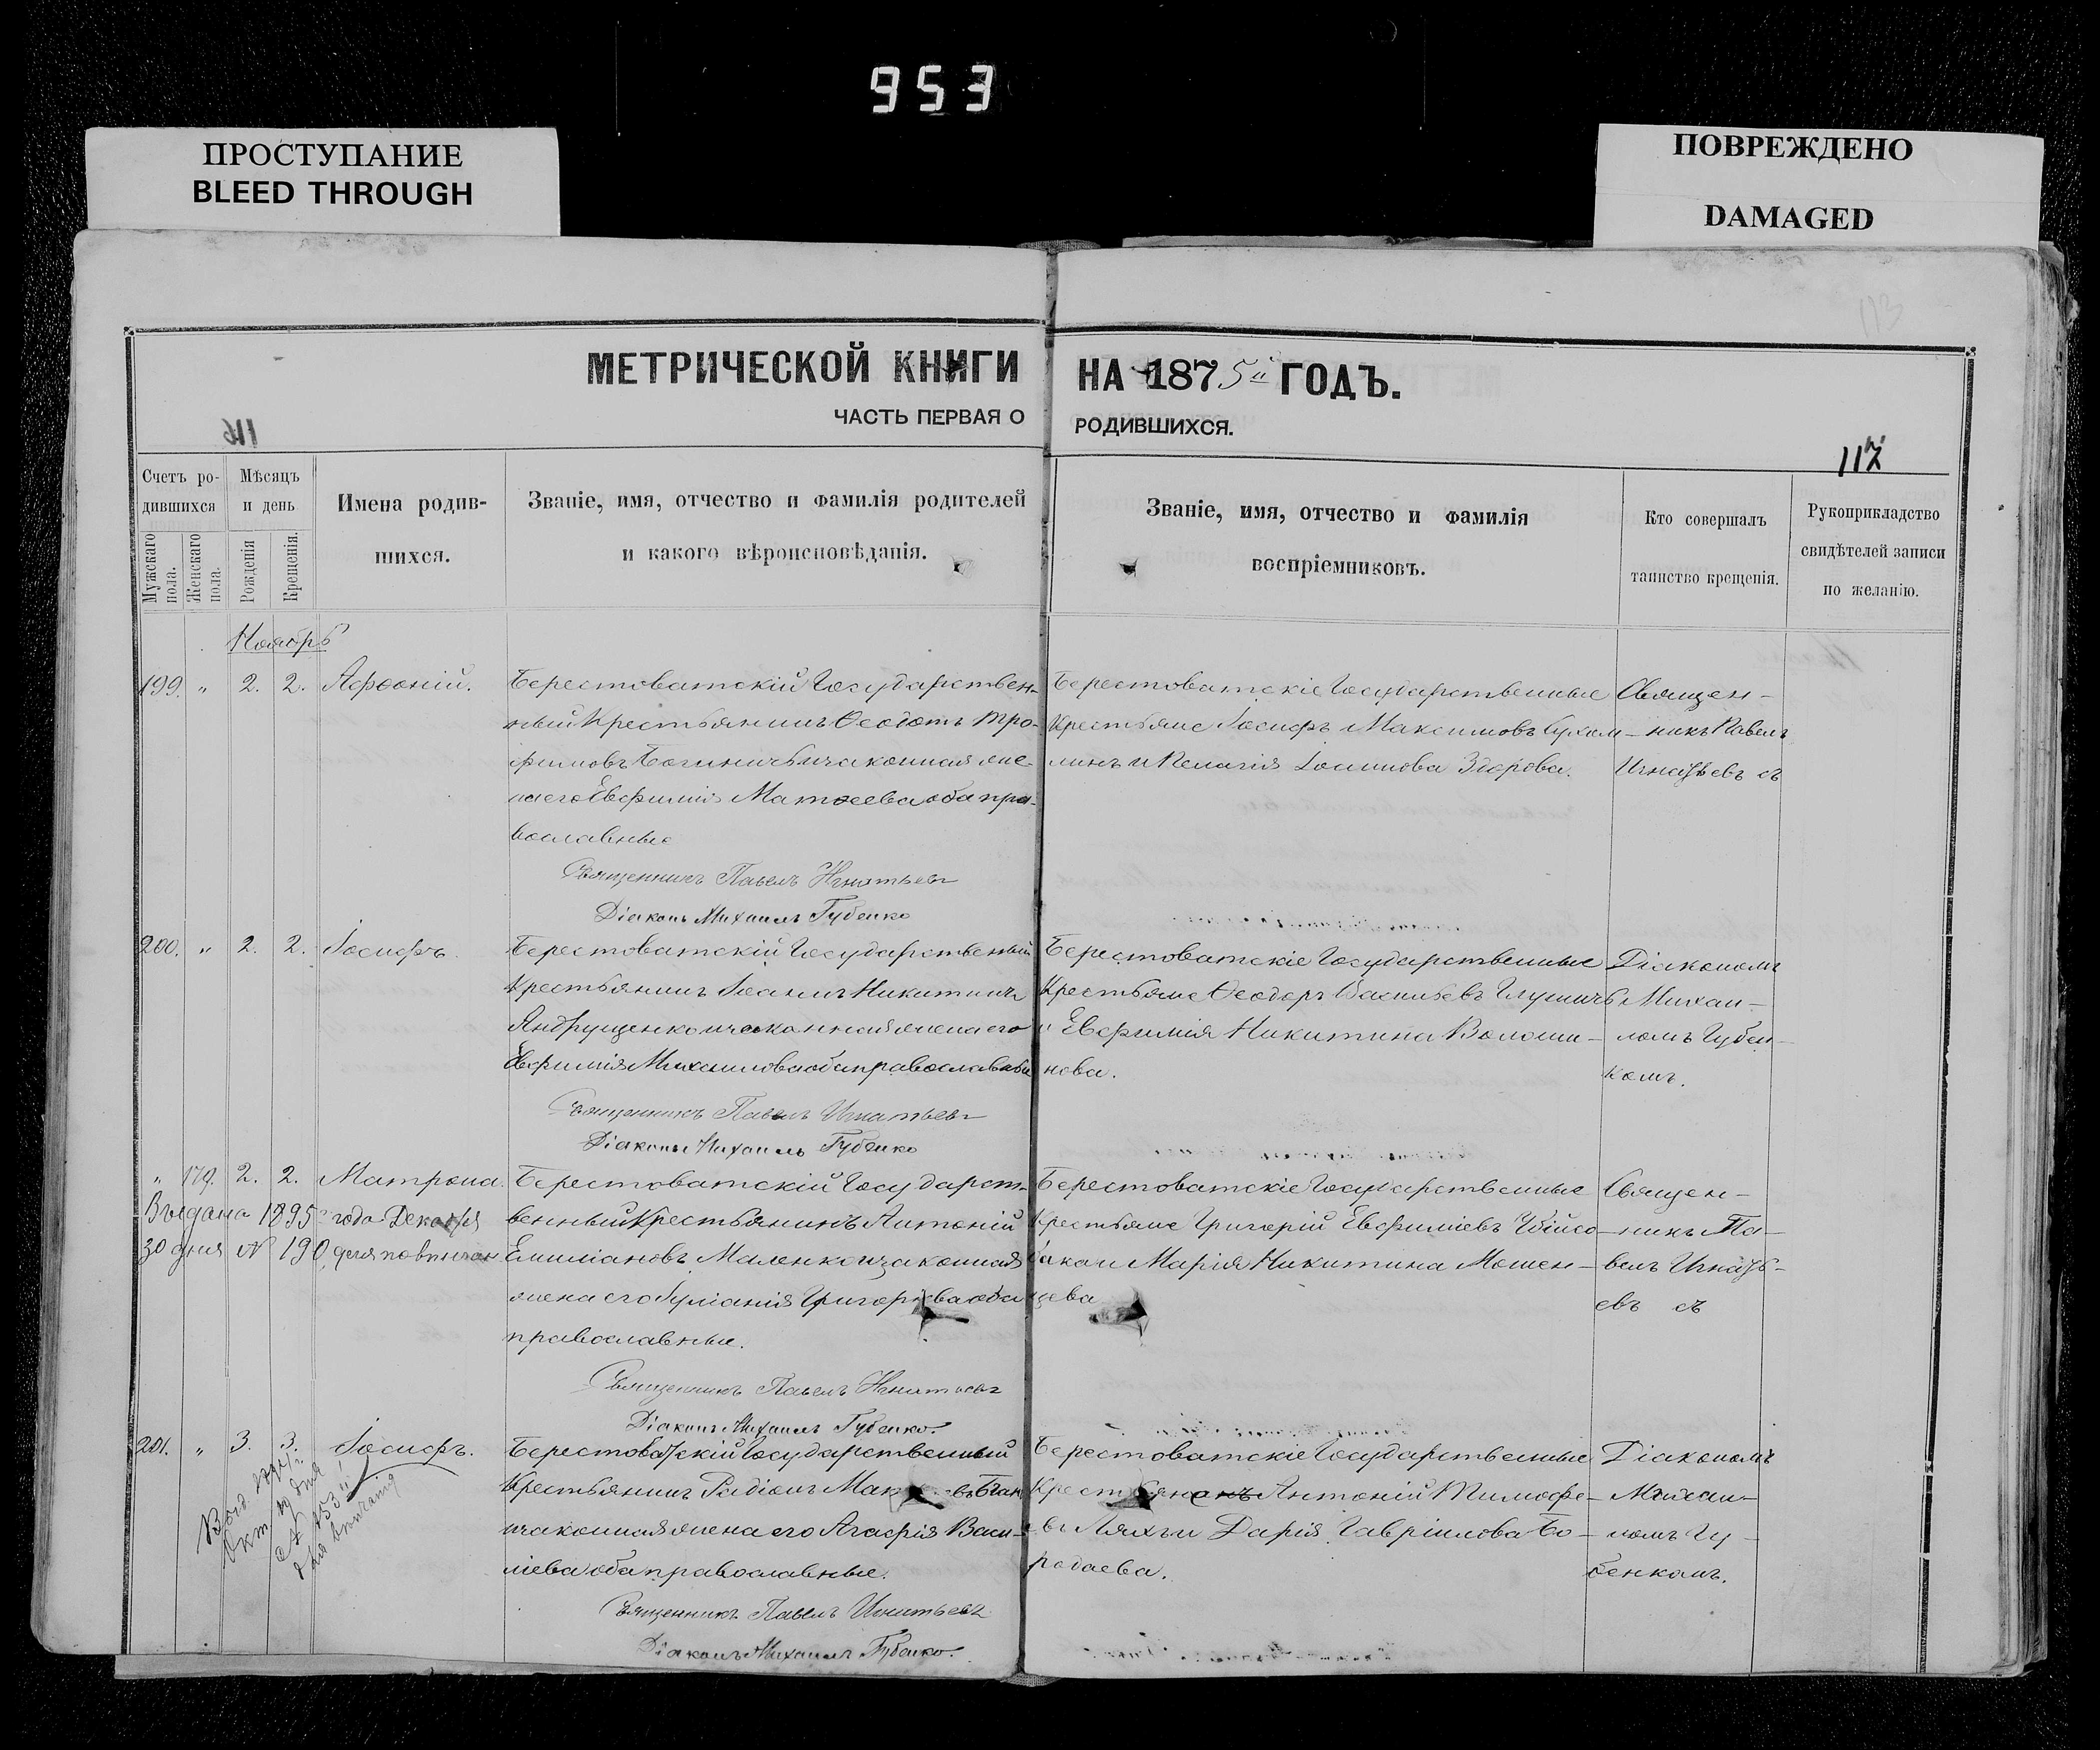 953
ПРОСТУПАНИЕ
BLEED THROUGH
ПОВРЕЖДЕНО
DAMAGED
МЕТРИЧЕСКОЙ КНИГИ НА 1875й ГОДЪ.
ЧАСТЬ ПЕРВАЯ О РОДИВШИХСЯ.
116
117
Счетъ ро-
дившихся
Мужскаго пола.
Женскаго пола.
Мѣсяцъ
и день
Рожденія
Крещенія.
Имена родив-
шихся.
Званіе, имя, отчество и фамилія родителей
и какого вѣроисповѣданія.
Званіе, имя, отчество и фамилія
воспріемниковъ.
Кто совершалъ
таинство крещенія.
Рукоприкладство
свидѣтелей записи
по желанію.
Ноябрь
199. " 2. 2. Афѳоній.
Берестоватскій Государствен-
ный Крестьянинъ Ѳеодотъ Тро-
фимовъ и законная же-
на его Евфимія Матѳеева оба пра-
вославные
Священникъ Павелъ Игнатьевъ
Діаконъ Михаилъ Губенко
Берестоватскіе Государственные
Крестьяне Іосифъ Максимовъ
и Пелагія Іоаннова Здорова.
Священ-
никъ Павелъ
Игнатьевъ съ
200. " 2. 2. Іосифъ.
Берестоватскій Государственный
Крестьянинъ Іоаннъ Никитинъ
Андрущенко и законная жена его
Евфимія Михаилова оба православные
Священникъ Павелъ Игнатьевъ
Діаконъ Михаилъ Губенко
Берестоватскіе Государственные
Крестьяне Ѳеодоръ Васильевъ
и Евфимія Никитина Волоши-
нова.
Діакономъ
Михаи-
ломъ Губен-
комъ.
" 179. 2. 2. Матрона.
Выдана 1895 года Декабря
30 дня № 190 для повѣнчан
Берестоватскій Государст-
венный Крестьянинъ Антоній
Емиліановъ Маленко и законная
жена его Іуліанія Григорьева оба
православные.
Священникъ Павелъ Игнатьевъ
Діаконъ Михаилъ Губенко.
Берестоватскіе Государственные
Крестьяне Григорій Евфиміевъ Убійсо-
бака и Марія Никитина Мошен-
цева
Священ-
никъ Па-
велъ Игнать-
евъ съ
201. " 3. 3. Іосифъ.
Берестоватскій Государственный
Крестьянинъ Родіонъ
и законная жена его Агафія Васи-
ліева оба православные.
Священникъ Павелъ Игнатьевъ
Діаконъ Михаилъ Губенко.
Берестоватскіе Государственные
Антоній Тимофе-
евъ Ляхъ и Дарія Гавріилова Бо-
родаева.
Діакономъ
Михаи-
ломъ Гу-
бенкомъ.